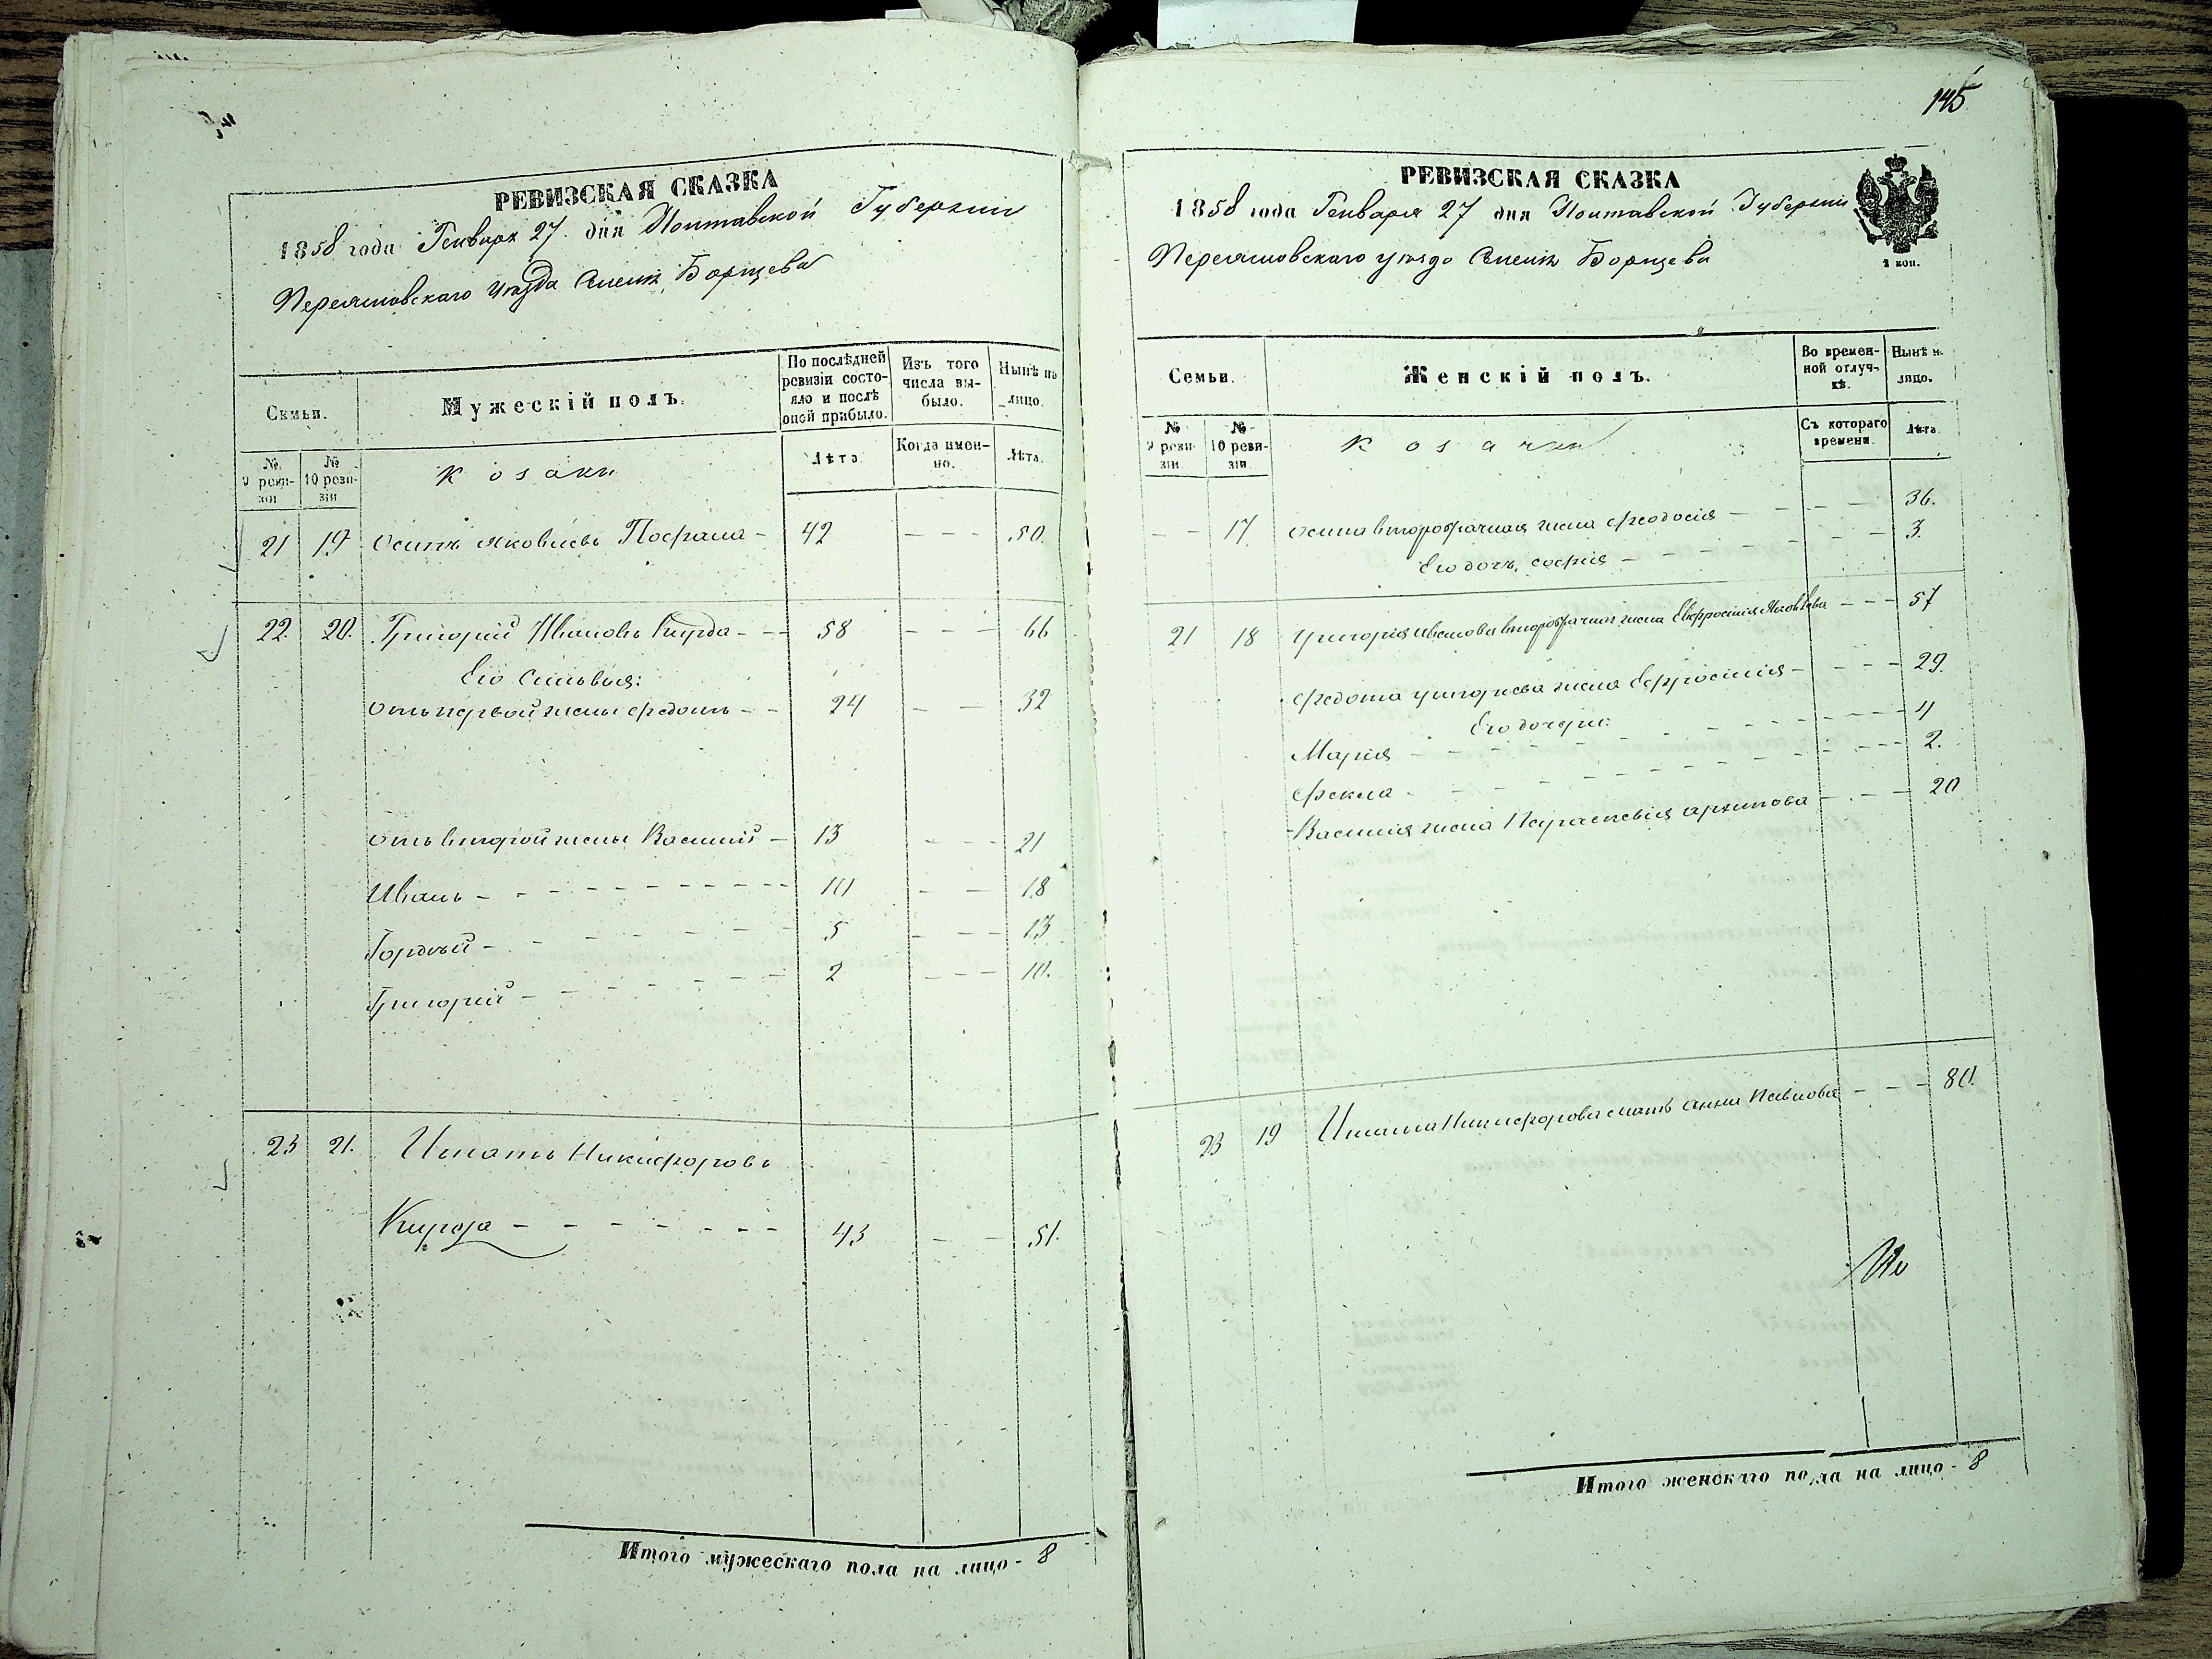 145
РЕВИЗСКАЯ СКАЗКА
1858 года Генваря 27 дня Полтавской Губернии
Переяславского уѣзда Борщева
Семьи.
Мужескій полъ.
По послѣдней ревизіи состояло и послѣ оной прибыло.
Изъ того числа выбыло.
Нынѣ на лицо.
№ 9 ревизіи
№ 10 ревизіи
козаки
Лѣта.
Когда именно.
Лѣта.
21 19 Осипъ Яковлевъ 42 - - - 50.
22. 20. Григорій Ивановъ Кирда - - 58 - - - 66
Его Сыновья:
отъ первой жены Федотъ - - 24 - - 32
отъ второй жены Василий - 13 - - - 21
Иванъ - 10 - - 18
Гордѣй - 5 - - - 13
Григорий - 2 - - - 10.
23 21. Игнатъ Никифоровъ
Кирда - 43 - - 51.
Итого мужескаго пола на лицо - 8
РЕВИЗСКАЯ СКАЗКА
1858 года Генваря 27 дня Полтавской Губерніи
Переяславского уѣзда Борщева
2 коп.
Семьи.
Женскій полъ.
Во временной отлучкѣ.
Нынѣ на лицо.
№ 9 ревизіи
№ 10 ревизіи
козачки
Съ котораго времени.
Лѣта.
- - 17 Осипа второбрачная жена Феодосія - - - - 36.
Его дочь София - - - 3.
21 18 Григорія Иванова второбрачная жена Евфросинія Яковлева - - - 57
Федота Григорьева жена Ефросинія - - - - 29.
Его дочери:
Марія - 4
Фекла - 2.
Василія жена Параскевія Архипова - - - 20
23 19 Игната Никифорова мать Анна Павлова - - - 80.
Итого женскаго пола на лицо - 8